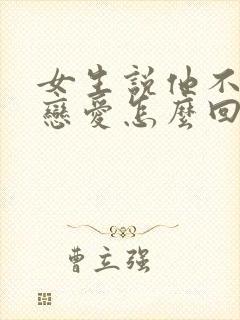 女生説他不
戀愛怎麼回
曹立强